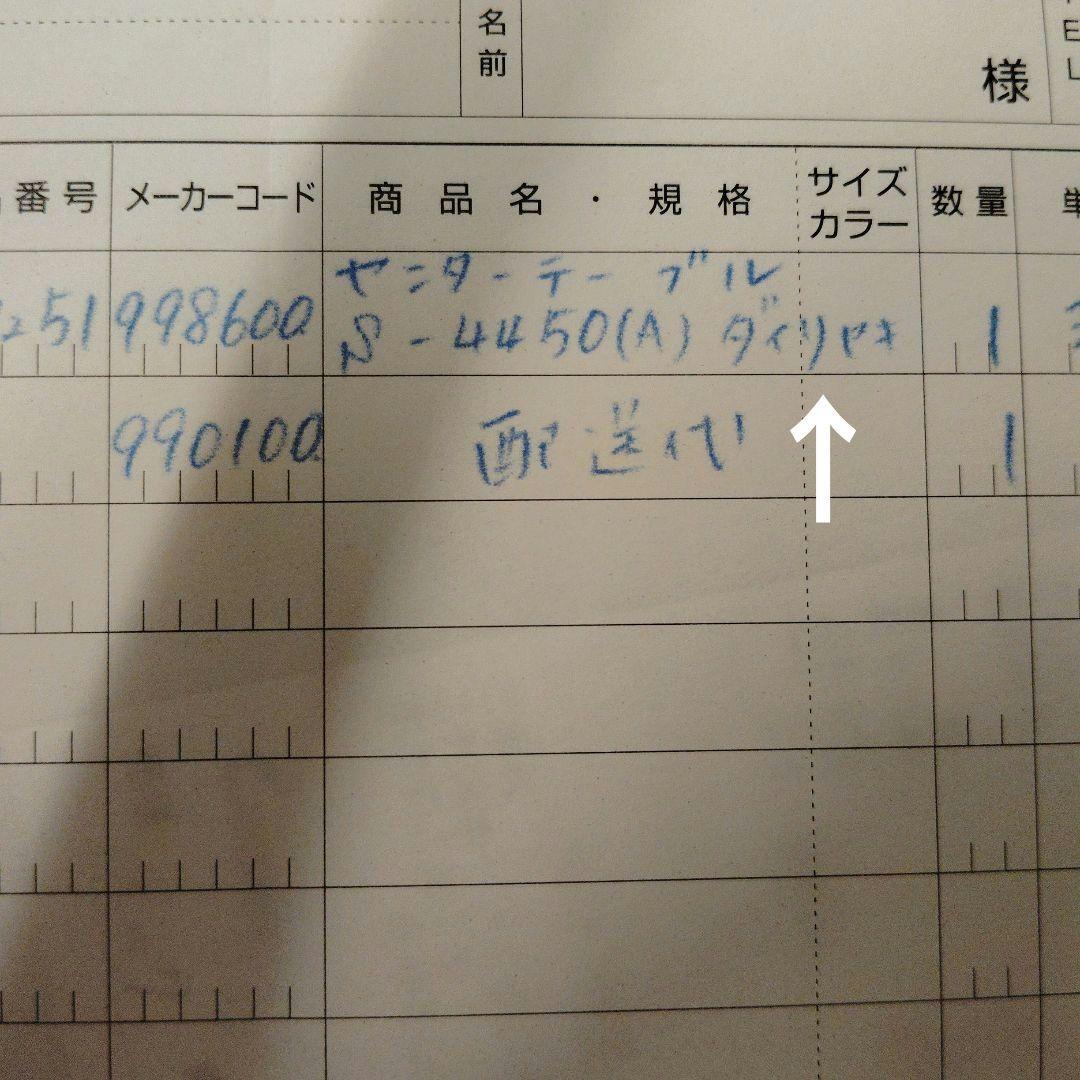 名前
様
番号 メーカーコード 商品名・規格 サイズカラー 数量 単
251 998600 センターテーブル 1
S-4450(A)ダイリヤキ
990100 配送代 1